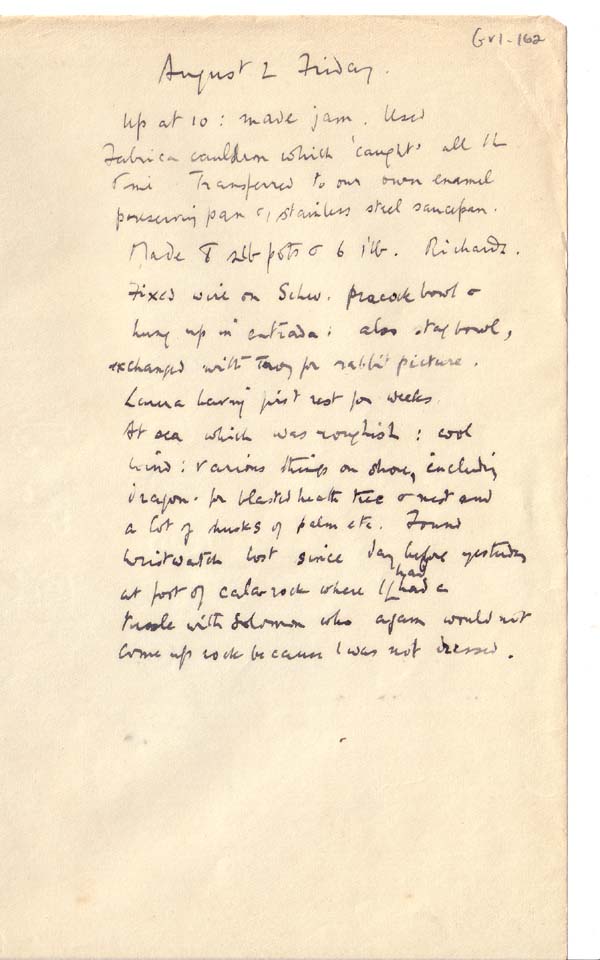 Gv1-162
August 2 Friday.
Up at 10: made jam. Used
Fabrica cauldron which 'caught' all the
time Transferred to our own enamel
preserving pan &, stainless steel saucepan.
Made 8 2lb pots & 6 1lb. Richards.
Fixed wire on Schw. peacock bowl &
hung up in entrada: also stag bowl,
exchanged with for rabbit picture.
Laura having first rest for weeks.
At sea which was roughish: cool
wind: various things on shore, including
dragon. for blasted heath tree & nest and
a lot of husks of palm etc. Found
wristwatch lost since day before yesterday
at foot of cala rock where I had had a
tussle with Solomon who again would not
come up rock because I was not dressed.